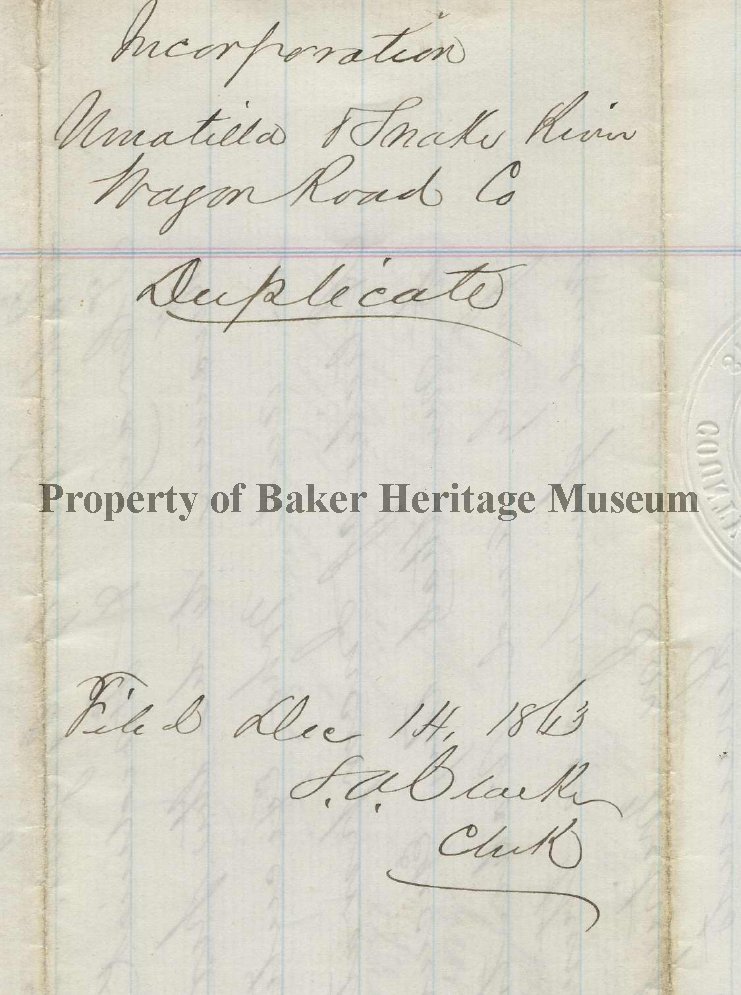 Incorporation
Umatilla & Snake River
Wagon Road Co
Duplicate
Property of Baker Heritage Museum
Filed Dec 14, 1863
S. A. Clarke
Clerk